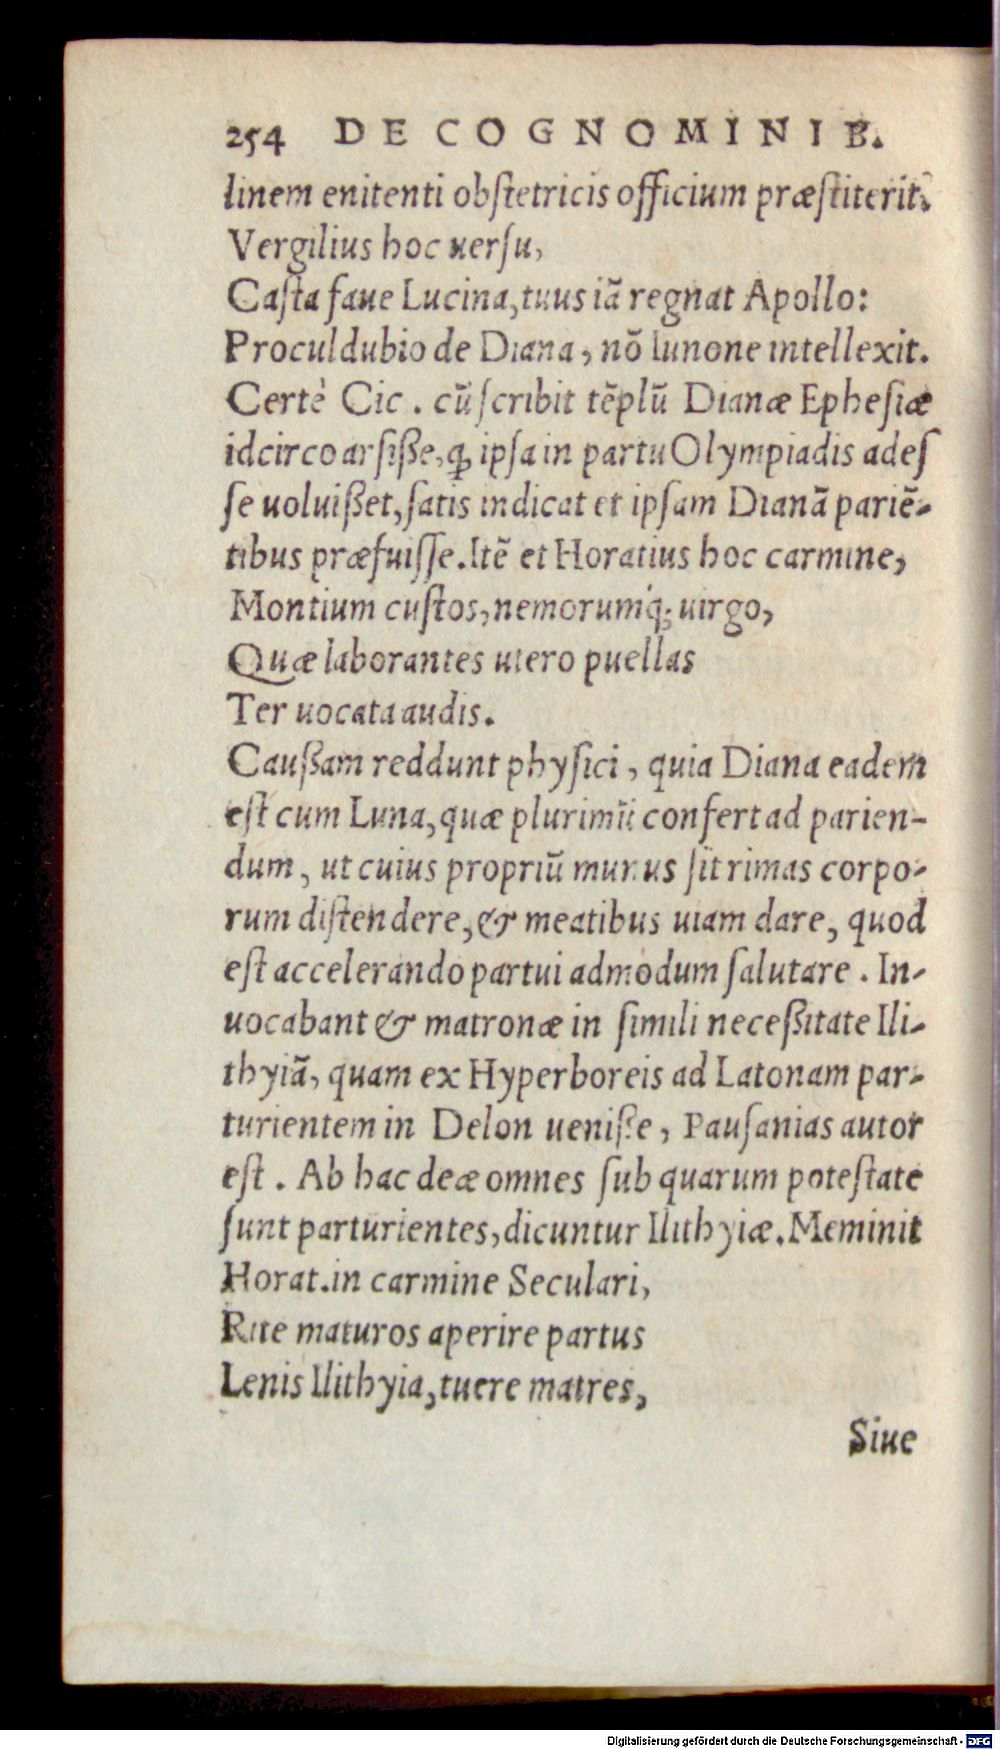 254 DE COGNOMINIB.
linem enitenti obſtetricis officium præſtiterit?
Vergilius hoc uerſu,
Caſta faue Lucina, tuus iã regnat Apollo:
Proculdubio de Diana, nõ Iunone intellexit.
Certè Cic. cũ ſcribit tẽplũ Dianæ Epheſiæ
idcirco arſiße, ꝙ ipſa in partu Olympiadis adeſ
ſe uoluißet, ſatis indicat et ipſam Dianã pariẽ-
tibus præfuiſſe. Itẽ et Horatius hoc carmine,
Montium cuſtos, nemorumq́; uirgo,
Quæ laborantes utero puellas
Ter uocata audis.
Cauſſam reddunt phyſici, quia Diana eadem
eſt cum Luna, quæ plurimũ confert ad parien-
dum, ut cuius propriũ munus ſit rimas corpo-
rum diſtendere, & meatibus uiam dare, quod
eſt accelerando partui admodum ſalutare. In-
uocabant & matronæ in ſimili neceßitate Ili-
thyiã, quam ex Hyperboreis ad Latonam par-
turientem in Delon ueniße, Pauſanias autor
eſt. Ab hac deæ omnes ſub quarum poteſtate
ſunt parturientes, dicuntur Ilithyiæ. Meminit
Horat. in carmine Seculari,
Rite maturos aperire partus
Lenis Ilithyia, tuere matres,
Siue
Digitalisierung gefördert durch die Deutsche Forschungsgemeinschaft - DFG